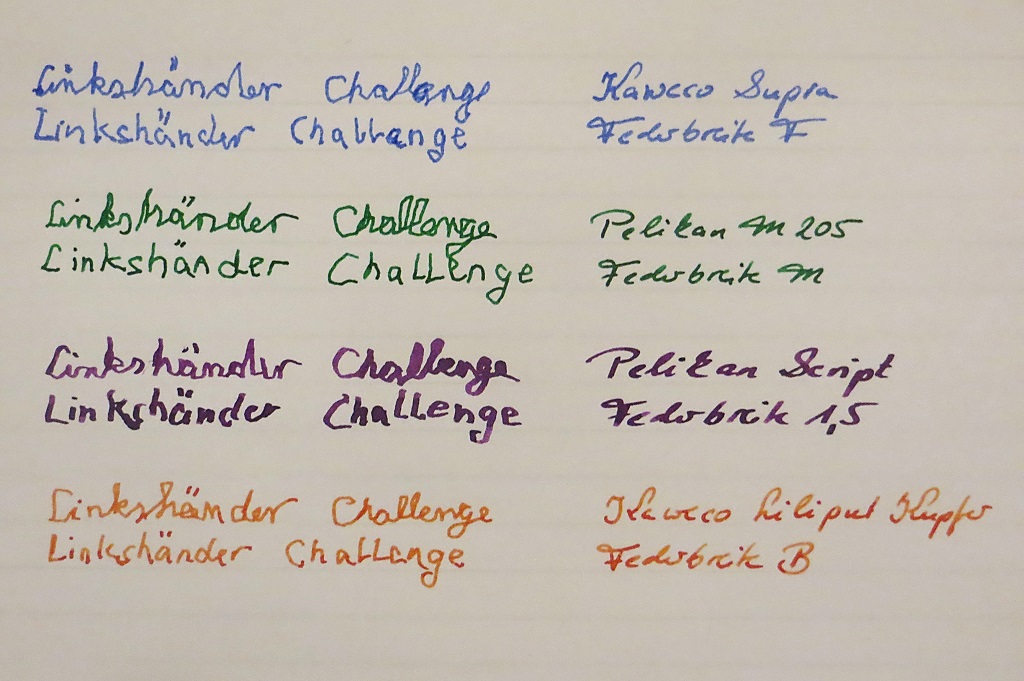 Linkshänder Challenge Kaweco Supra
Linkshänder Challange Federbreite F
Linkshänder Challenge Pelikan M 205
Linkshänder Challenge Federbreite M
Linkshänder Challenge Pelikan Script
Linkshänder Challenge Federbreite 1,5
Linkshänder Challenge Kaweco Liliput Kupfer
Linkshänder Challange Federbreite B